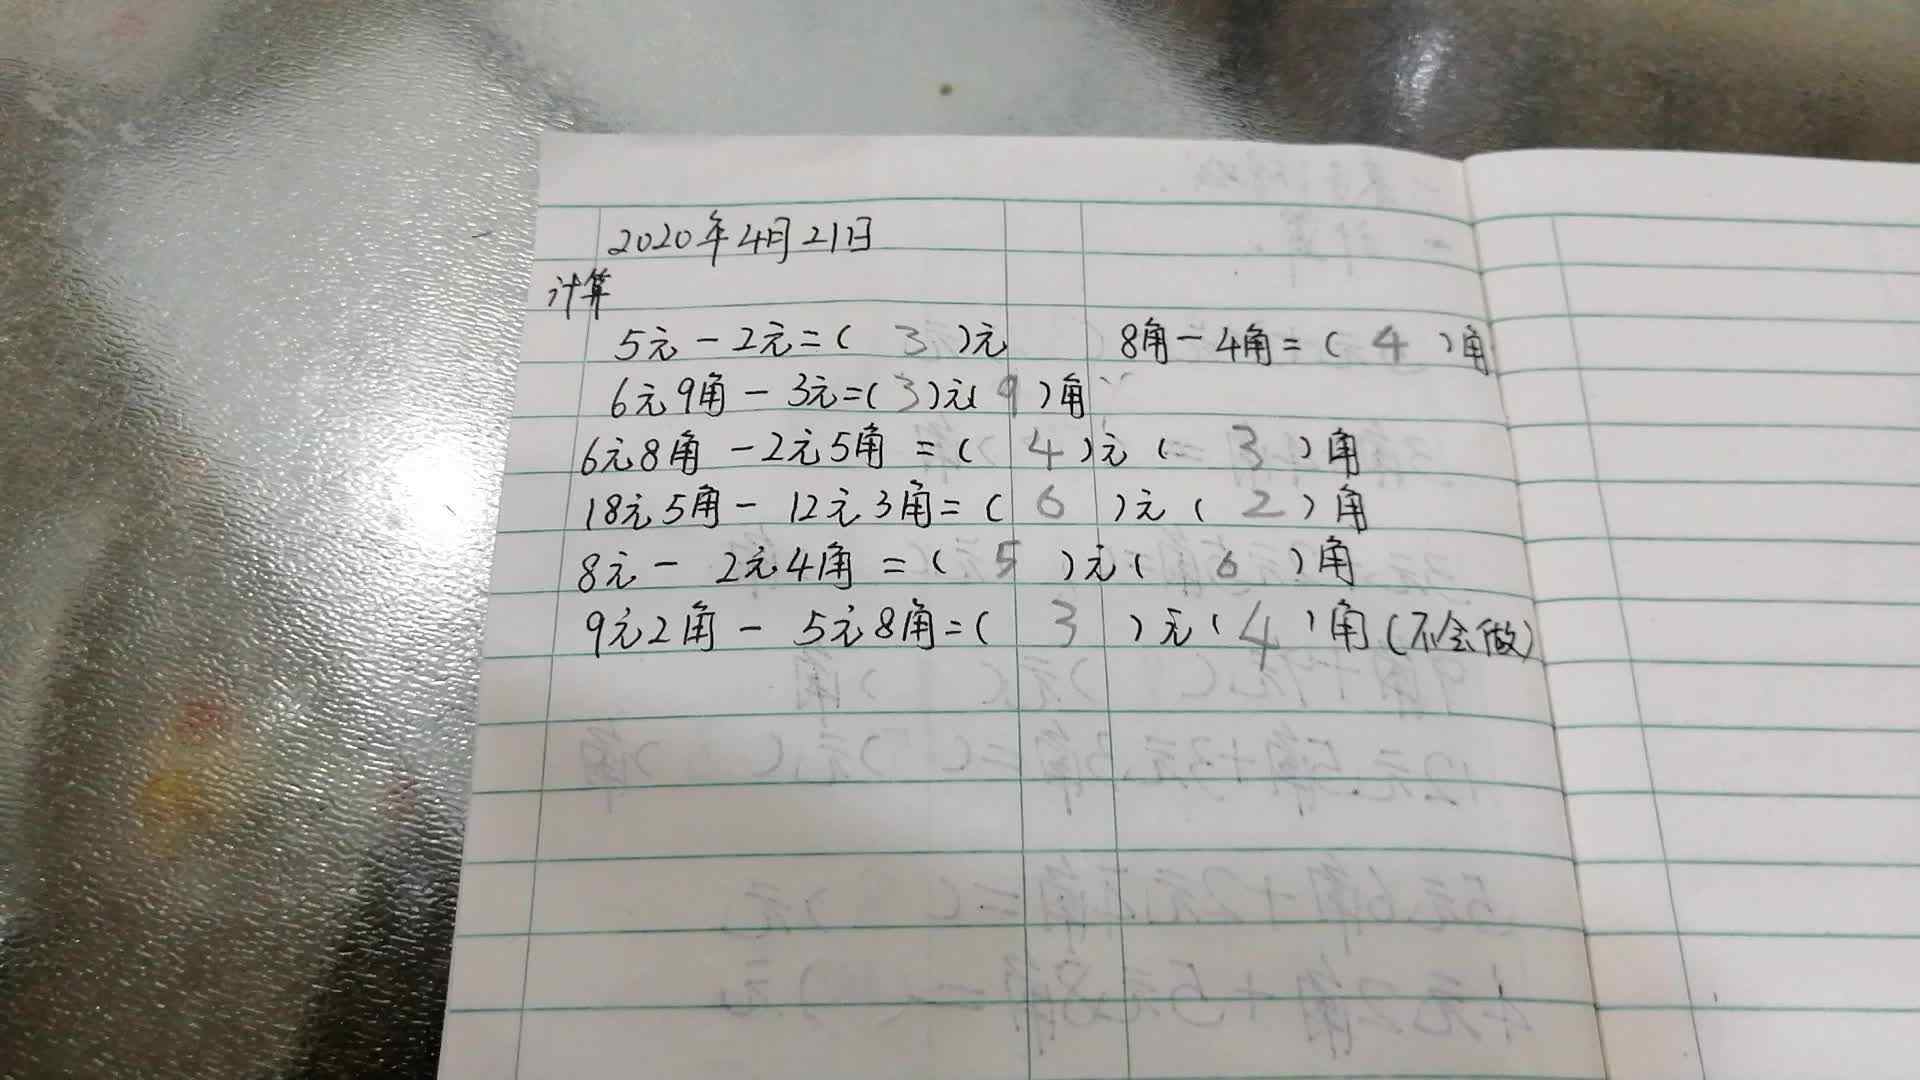 2020年4月21日
计算
5元-2元=( 3 )元 8角-4角=( 4 )角
6元9角-3元=(3)元(9)角
6元8角-2元5角=( 4 )元( 3 )角
18元5角-12元3角=( 6 )元( 2 )角
8元-2元4角=( 5 )元( 6 )角
9元2角-5元8角=( 3 )元( 4 )角(不会做)